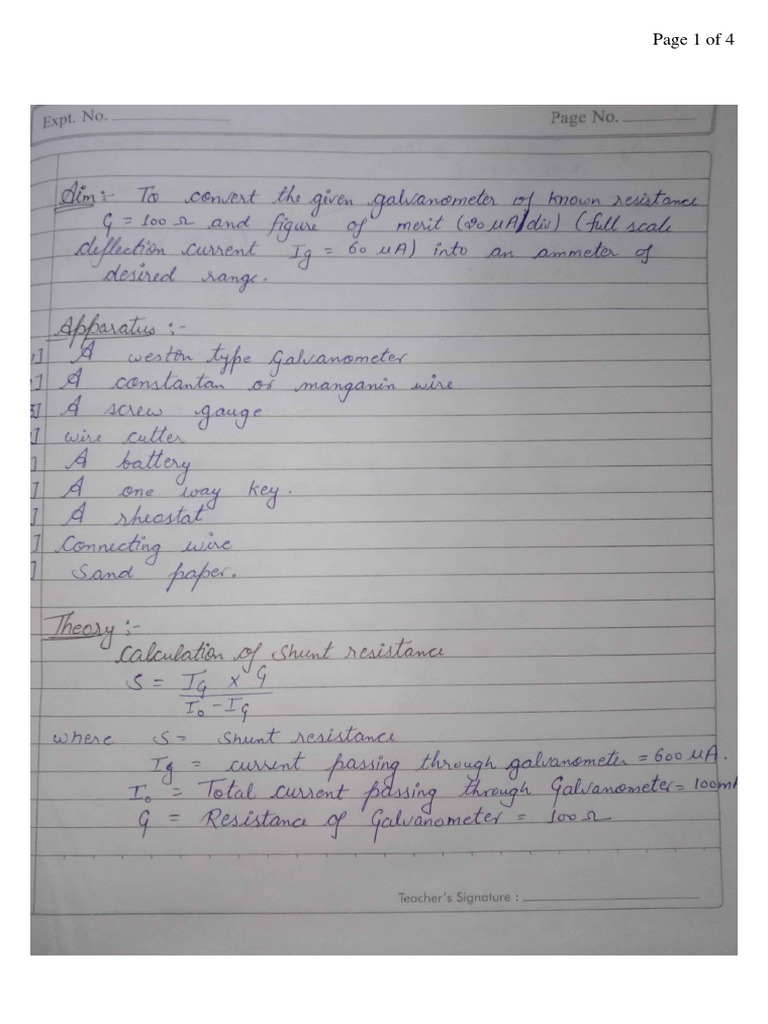 Page 1 of 4
Expt. No.
Page No.
Aim:- To convert the given galvanometer of known resistance
G = 100 Ω and figure of merit (20 μA/div) (full scale
deflection current Ig = 60 μA) into an ammeter of
desired range.
Apparatus :-
] A weston type Galvanometer
] A constantan or manganin wire
3] A screw gauge
] wire cutter
] A battery
] A one way key.
] A rheostat
] Connecting wire
] Sand paper.
Theory :-
Calculation of shunt resistance
S = IG x G
I₀ - IG
where S = shunt resistance
Ig = current passing through galvanometer = 600 μA.
I₀ = Total current passing through Galvanometer = 100m
G = Resistance of Galvanometer = 100 Ω
Teacher's Signature :